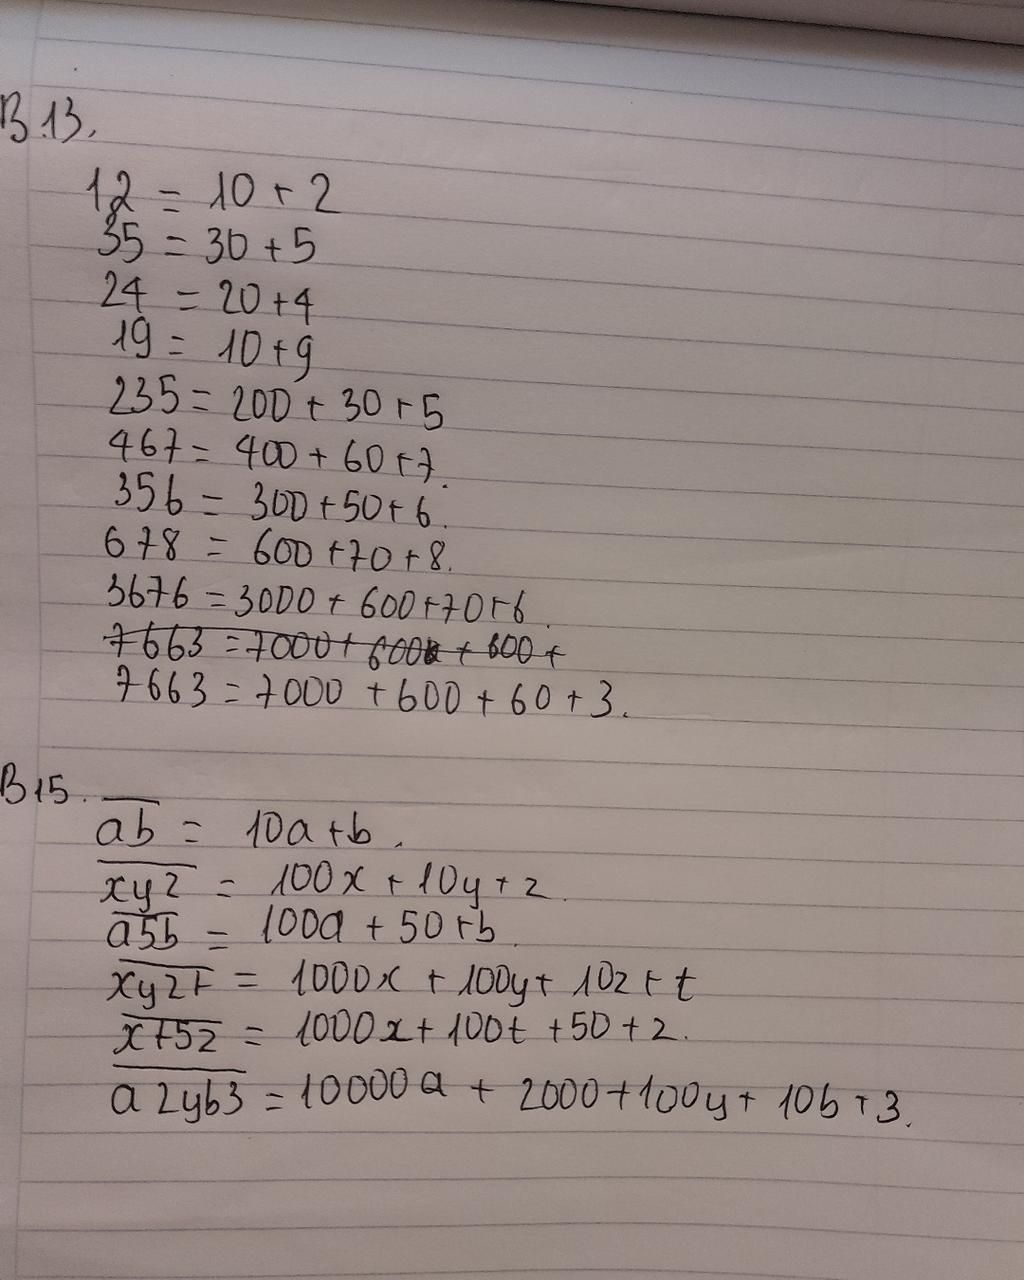 B.13.
12 = 10 + 2
35 = 30 + 5
24 = 20 + 4
19 = 10 + 9
235 = 200 + 30 + 5
467 = 400 + 60 + 7.
356 = 300 + 50 + 6.
678 = 600 + 70 + 8.
3676 = 3000 + 600 + 70 + 6.
7663 = 7000 + 600 + 600 +
7663 = 7000 + 600 + 60 + 3.
B15.
a̅b̅ = 10a + b.
x̅y̅z̅ = 100x + 10y + z.
a̅5̅b̅ = 100a + 50 + b.
x̅y̅z̅t̅ = 1000x + 100y + 10z + t
x̅t̅5̅z̅ = 1000x + 100t + 50 + z.
a̅2̅y̅b̅3̅ = 10000a + 2000 + 100y + 10b + 3.